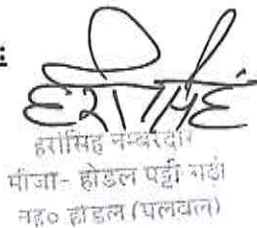 :
हरीसिंह
हरीसिंह नम्बरदार
मौजा- होडल पट्टी गढी
तह० होडल (पलवल)